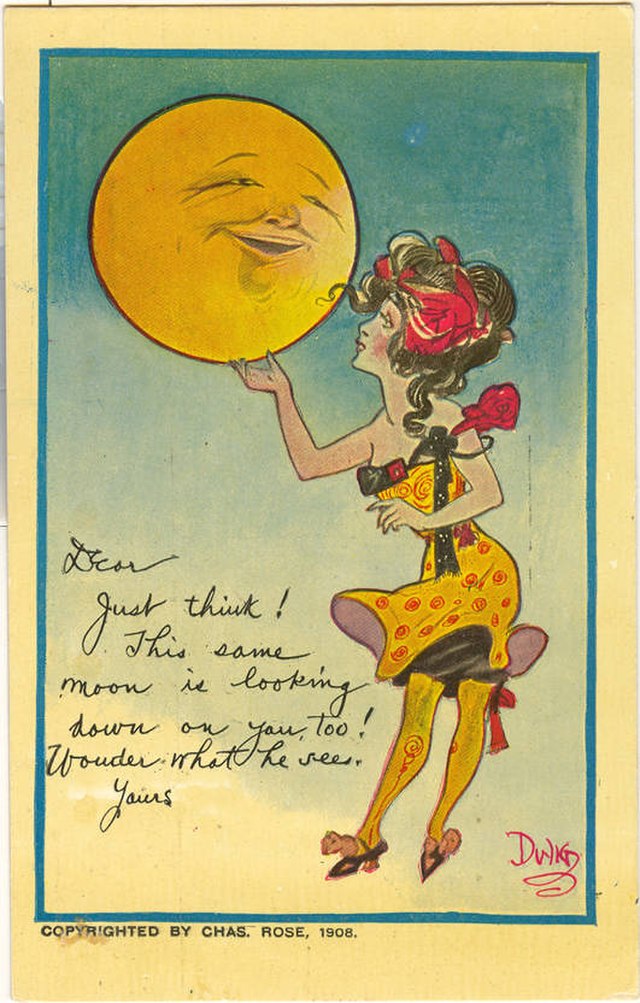 Dear
Just think!
This same
moon is looking
down on you, too!
Wonder what he sees.
Yours
Dwig
COPYRIGHTED BY CHAS. ROSE, 1908.